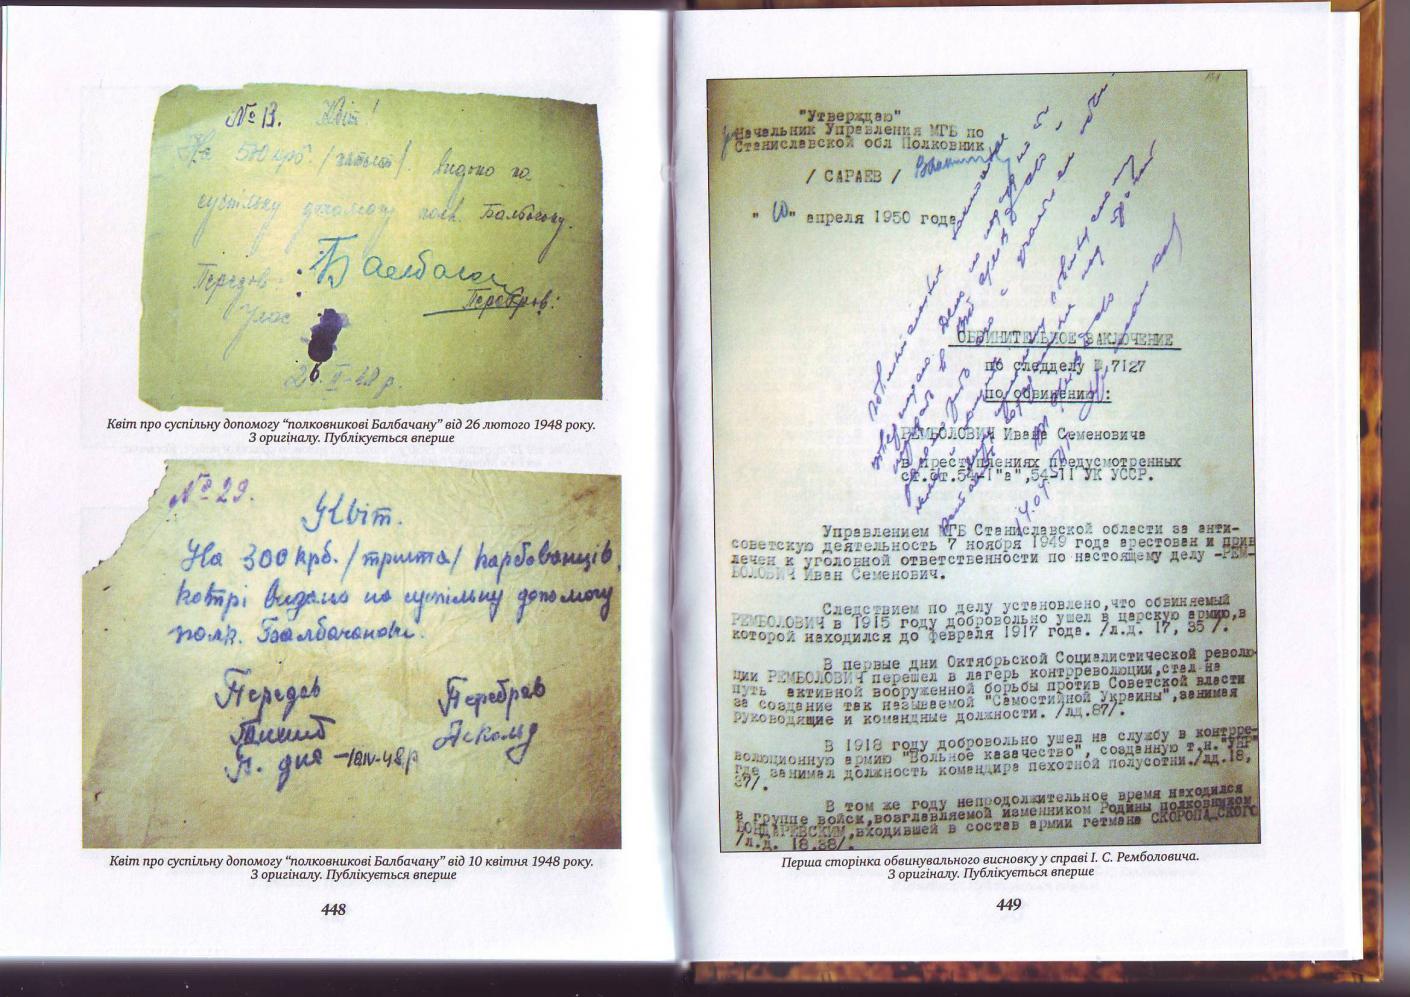 № 13. Квіт!
На 500 крб. /пятьсот/. видано на
суспільну допомогу полк. Балбачану.
Балбачан
Передав:
Перебрав:
Улас
26.II-48 р.
Квіт про суспільну допомогу “полковникові Балбачану” від 26 лютого 1948 року.
З оригіналу. Публікується вперше
№ 29.
Квіт.
На 300 крб. /триста/ карбованців,
котрі видано на суспільну допомогу
полк. Балбачанові.
Передав Перебрав
Аскольд
П. дня – 10.IV-48 р
Квіт про суспільну допомогу “полковникові Балбачану” від 10 квітня 1948 року.
З оригіналу. Публікується вперше
448
"Утверждаю"
Начальник Управления МГБ по
Станиславской обл Полковник
/ САРАЕВ /
"10" апреля 1950 года
ОБВИНИТЕЛЬНОЕ ЗАКЛЮЧЕНИЕ
по следделу №7127
по обвинению:
РЕМБОЛОВИЧ Ивана Семеновича
в преступлениях предусмотренных
ст.ст.54-1"а",54-11 УК УССР.
Управлением МГБ Станиславской области за анти-
советскую деятельность 7 ноября 1949 года арестован и прив
лечен к уголовной ответственности по настоящему делу -РЕМ-
БОЛОВИЧ Иван Семенович.
Следствием по делу установлено,что обвиняемый
РЕМБОЛОВИЧ в 1915 году добровольно ушел в царскую армию,в
которой находился до февраля 1917 года. /л.д. 17, 35 /.
В первые дни Октябрьской Социалистической револю-
ции РЕМБОЛОВИЧ перешел в лагерь контрреволюции,стал на
путь активной вооруженной борьбы против Советской власти
за создание так называемой "Самостийной Украины",занимая
руководящие и командные должности. /лд.87/.
В 1918 году добровольно ушел на службу в контрре-
волюционную армию "Вольное казачество", созданную т.н."УНР"
где занимал должность командира пехотной полусотни./лд.18,
37/.
В том же году непродолжительное время находился
в группе войск,возглавляемой изменником Родины полковником
БОНДАРЕВСКИМ,входившей в состав армии гетмана СКОРОПАДСКОГО
/л.д. 18,38/.
Перша сторінка обвинувального висновку у справі І. С. Ремболовича.
З оригіналу. Публікується вперше
449